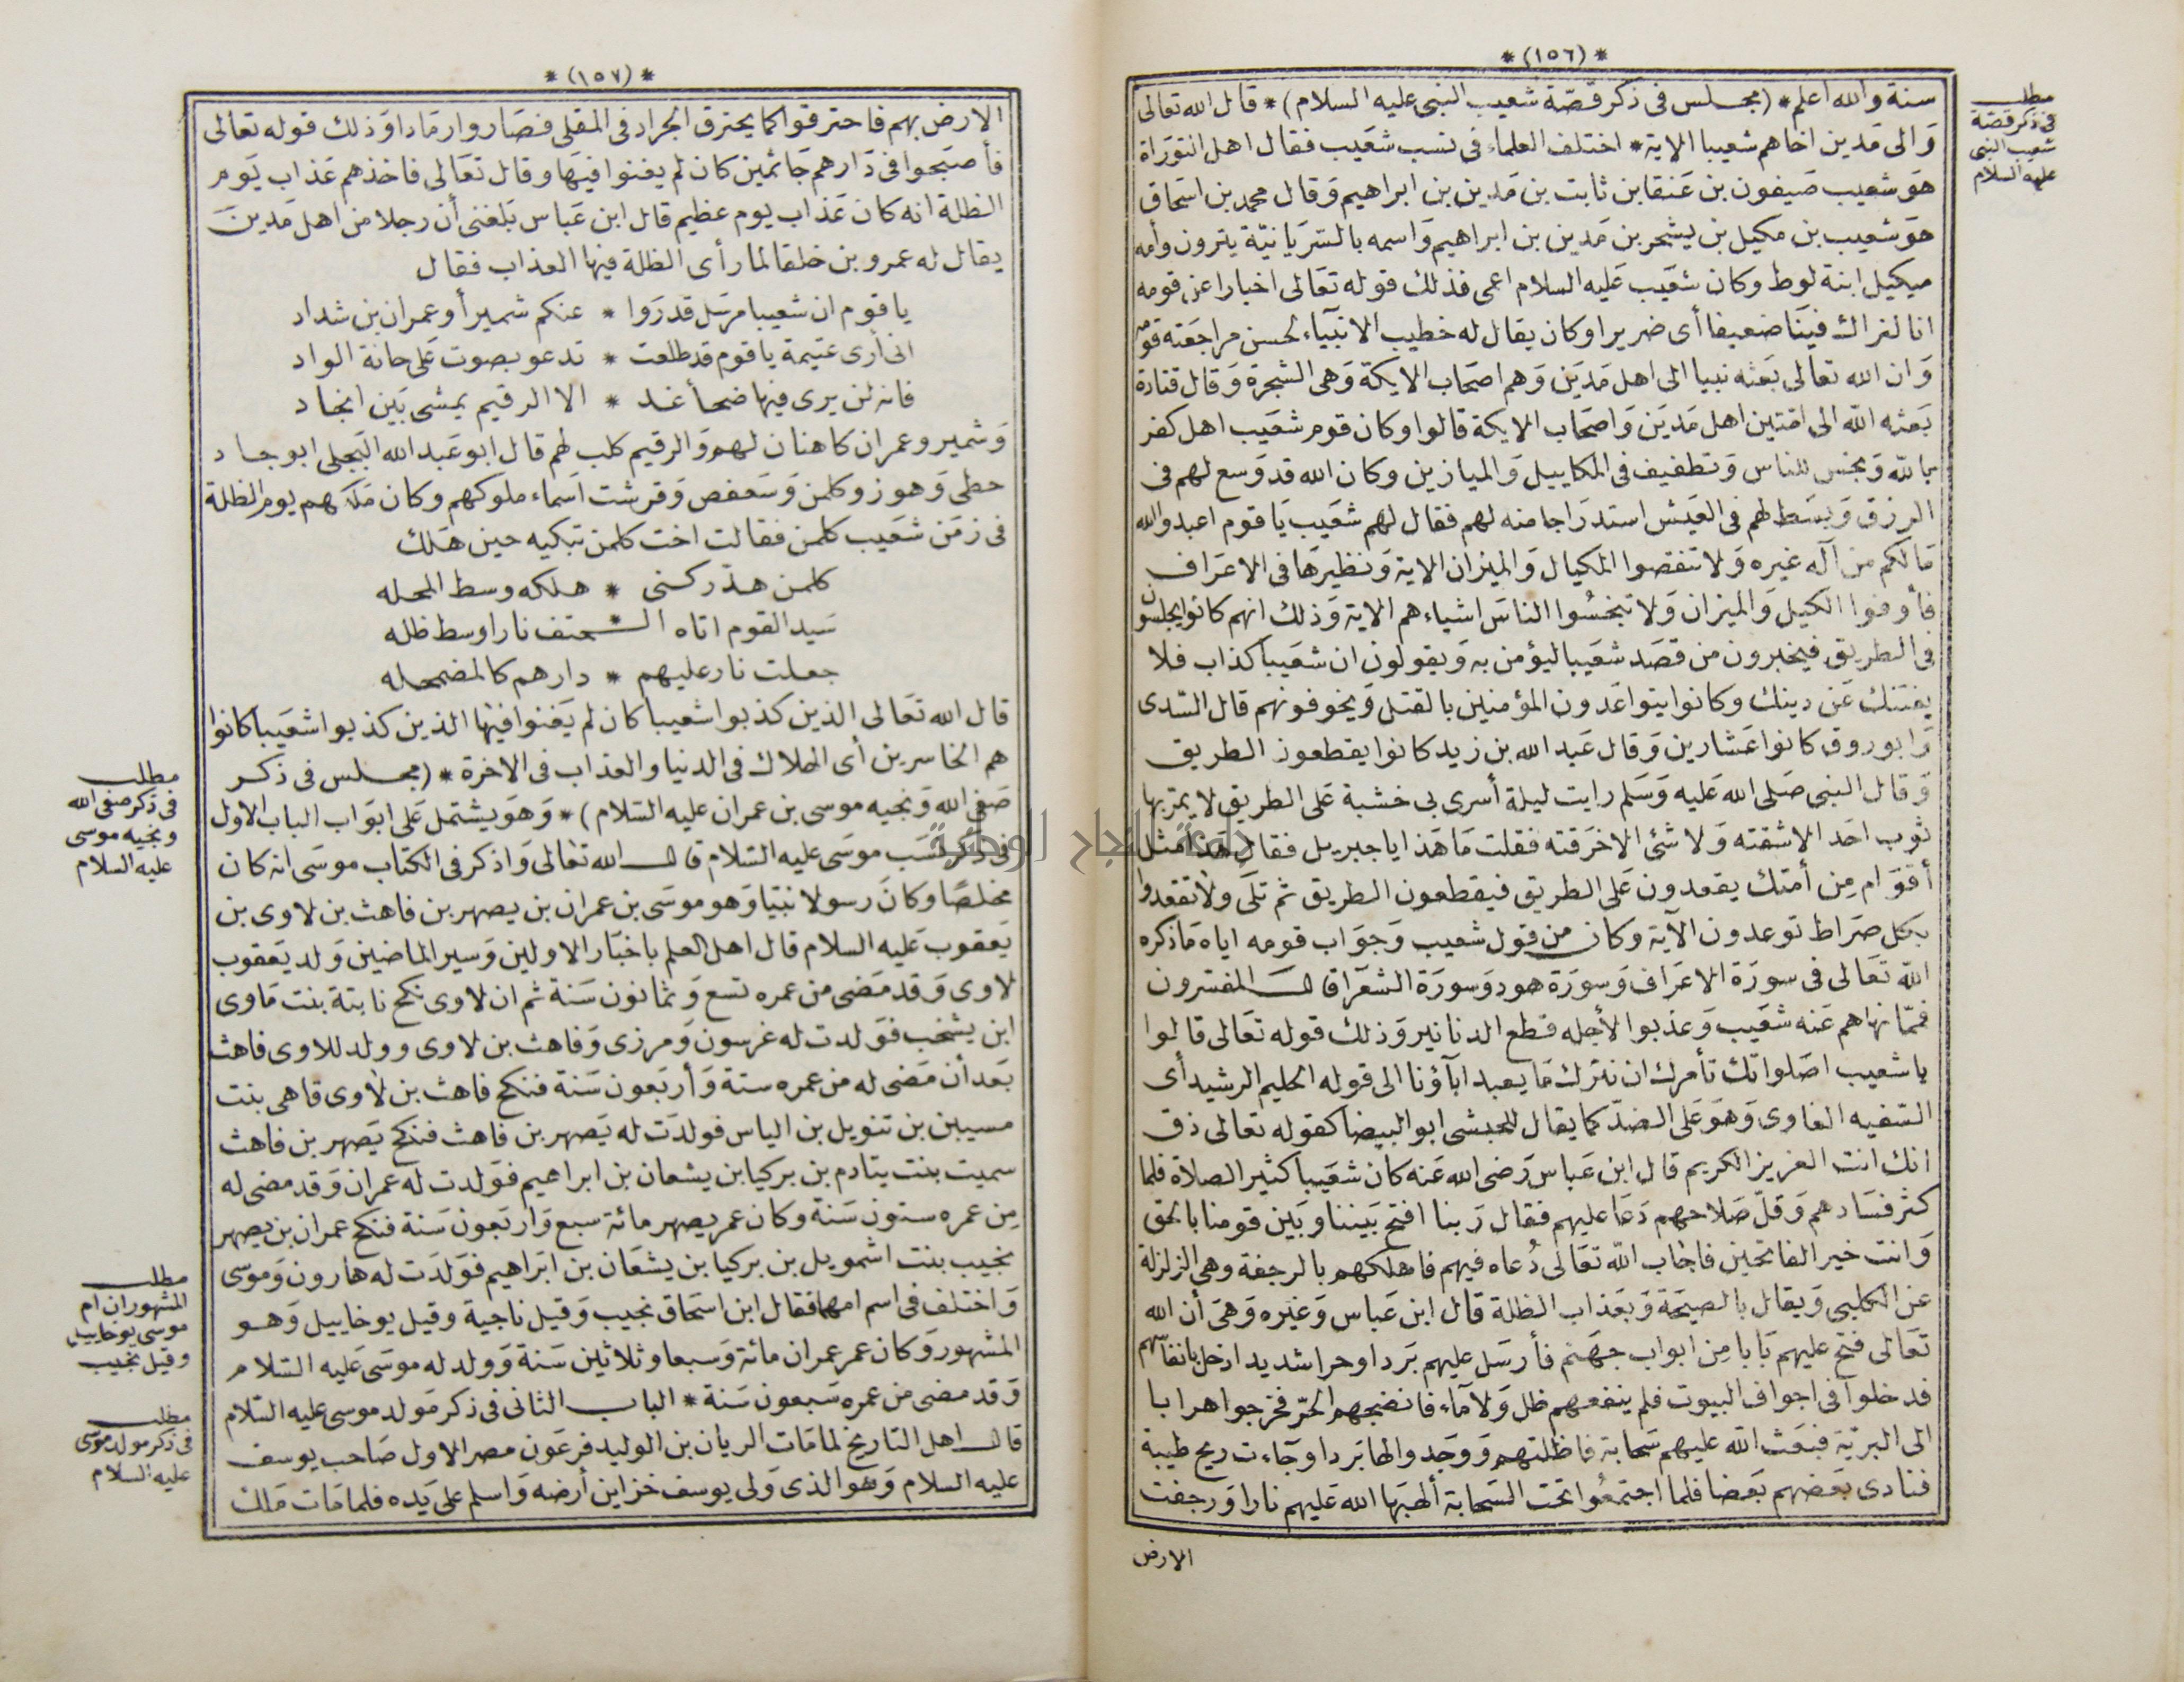 * (١٥٦) *
مطلب
في ذكر قصة
شعيب النبي
عليه السلام
سنة والله اعلم * (مجلس في ذكر قصة شعيب النبي عليه السلام) * قال الله تعالى
وَالى مَدين اخاهم شعيبا الاية * اختلف العلماء في نسب شعَيب فقال اهل التوَراة
هوَ شعيب بن صَيفون بن عَنقا بن ثابت بن مَدين بن ابراهيم وَقال محمد بن اسحاق
هوَ شعيب بن مكيل بن يشجر بن مَدين بن ابراهيم وَاسمه بالسّرَيانيّة يترون وأمه
ميكيل ابنة لوط وكان شعَيب عَليه السلام اعمى فذلك قوله تعَالى اخبارا عن قومه
انا لنراك فينَا ضعيفا أى ضريرا وكان يقال له خطيب الانبيَآء لحسن مراجَعَته قومه
وَان الله تعَالى بَعَثه نبيا الى اهل مَدين وَهم اصحَاب الايكة وَهى الشجرَة وَقال قتادة
بَعثه الله الى امّتين اهل مَديَن وَاصحَاب الايكة قالوا وكان قوم شعَيب اهل كفر
بالله وَبخس للناس وَتطفيف فى المكاييل وَالميازين وكان الله قد وَسع لهم فى
الرزق وَبسَط لهم فى العَيش استدرَاجا منه لهم فقال لهم شعَيب يَا قوم اعبدوا الله
مَا لكم من آله غيره وَلا تنقصوا المكيال وَالميزان الاية وَنظيرهَا فى الاعرَاف
فأوفوا الكيل وَالميزان وَلا تبخسُوا الناسَ اشياءهم الاية وَذلك انهم كانوا يجلسون
فى الطريق فيخبرون من قصَد شعَيبا ليؤمن به وَيقولون ان شعَيبا كذاب فلا
يفتننك عَن دينك وكانوا يتواعَدون المؤمنين بالقتل وَيخوفونهم قال السّدى
وَابو روق كانوا عَشارين وَقال عَبد الله بن زيد كانوا يقطعون الطريق
وَقال النبى صَلى الله عَليه وَسَلم رايت ليلة أسرى بى خشبة عَلى الطريق لا يمرّ بها
ثوب احَد الا شقته وَلا شئ الا خرَقته فقلت مَا هَذا يا جبريل فقال هَذا مثل
أقوَام مِن أمتك يقعدون عَلى الطريق فيقطعون الطريق ثم تلَى وَلا تقعدوا
بكل صرَاط توعدون الآية وكان من قول شعيب وَجوَاب قومه اياه مَا ذكره
الله تعَالى فى سورَة الاعرَاف وَسورَة هود وَسورَة الشعَرا قال المفسّرون
فممّا نهاهم عَنه شعَيب وَعذبوا لأجله قطع الدنانير وَذلك قوله تعَالى قالوا
يا شعيب اصَلواتك تأمرك ان نترك مَا يعبد ابآؤنا الى قوله الحليم الرشيد أى
السّفيه الغاوى وَهوَ عَلى الضدّ كما يقال للحبشى ابو البيضا كقوله تعَالى ذق
انك انت العزيز الكريم قال ابن عَباس رَضى الله عَنه كان شعَيبا كثير الصلاة فلما
كثر فسَادهم وَقلّ صَلاحهم دَعَا عليهم فقال رَبنا افتح بَيننا وبَين قومنا بالحق
وَانت خير الفاتحين فاجاب الله تعَالى دُعاه فيهم فاهلكهم بالرجفة وهى الزلزلة
عن الكلبى وَيقال بالصيحَة وَبعَذاب الظلة قال ابن عَباس وَغيره وَهىَ أن الله
تعَالى فتح عليهم بَابا مِن ابواب جهَنم فأرسَل عليهم بَردا وحرا شديدا دخل بانفاسهم
فدخلوا فى اجواف البيوت فلم ينفعهم ظل وَلا مَآء فانضجهم الحَرّ فخرجوا هرابا
الى البريّة فبعَث الله عليهم سَحابة فاظلتهم وَوجَدوا لها بَردا وَجَاءت ريح طيبة
فنادى بَعَضهم بَعَضا فلما اجتمعُوا تحت السّحابة ألهبَها الله عَليهم نارا وَرجفت
الارض
* (١٥٧) *
الارض بهم فاحترقوا كما يحترق الجراد فى المقلى فصَاروا رمَادا وَذلك قوله تعالى
فأصبَحوا فى دَارهم جَاثمين كان لم يغنوا فيهَا وقال تعَالى فاخذهم عَذاب يَوم
الظلة انه كان عَذاب يوم عظيم قال ابن عَباس بَلغنى أن رجلا من اهل مَدين
يقال له عمرو بن خلقا لما رأى الظلة فيها العذاب فقال
يا قوم ان شعيبا مرسَل قدرَوا * عنكم شميرا وعمران بن شداد
انى أرى غيمة يا قوم قد طلعت * تدعو بصوت عَلى حانة الواد
فانه لن يرى فيها ضحأ غد * الا الرقيم يمشى بَين انجاد
وَشمير وعمران كاهنان لهم وَالرقيم كلب لهم قال ابو عَبد الله البَجلى ابو جاد
حطى وَهوز وكلمن وَسَعفص وَقرشت اسَماء ملوكهم وكان مَلكهم يوم الظلة
فى زمَن شعَيب كلمن فقالت اخت كلمن تبكيه حين هَلك
كلمن هدّ ركنى * هلكه وسط المحله
سَيد القوم اتاه الـ*ـحتف نارا وسط ظله
جعلت نار عليهم * دارهم كالمضمحله
قال الله تعَالى الذين كذبوا شعيبا كان لم يَغنوا فيها الذين كذبوا شعَيبا كانوا
هم الخاسرين أى الهلاك فى الدنيا والعذاب فى الاخرة * (مجلس فى ذكر
صَفى الله وَنجيه موسى بن عمران عليه السّلام) * وَهوَ يشتمل عَلى ابوَاب الباب الاول
فى ذكر نسَب موسَى عليه السّلام قال الله تعَالى وَاذكر فى الكتاب موسَى انه كان
مخلصًا وكانَ رَسولا نبَيا وَهو موسَى بن عمران بن يصهر بن فاهث بن لاوى بن
يَعقوب عَليه السلام قال اهل العلم باخبَار الاولين وَسير الماضين وَلد يَعقوب
لاوى وَقد مَضى من عمره تسع وَثمانون سَنة ثم ان لاوى نكح نابتة بنت مَاوى
ابن يشخب فوَلدت له غرسون وَمرزى وَفاهث بن لاوى وولد للاوى فاهث
بَعد أن مَضى له من عمره ستة وَأربَعون سَنة فنكح فاهث بن لاوى قاهى بنت
مسيبن بن تنويل بن الياس فولدَت له يَصهر بن فاهث فنكح يَصهر بن فاهث
سميت بنت يتادم بن بركيا بن يشعان بن ابراهيم فوَلدت له عمران وَقد مضى له
مِن عمره ستون سَنة وكان عمر يصهر مائة سبع وَاربَعون سَنة فنكح عمران بن يصهر
نجيب بنت اشمويل بن بركيا بن يشعَان بن ابرَاهيم فوَلدَت له هارون وَموسى
وَاختلف فى اسم امهما فقال ابن اسحَاق نجيب وَقيل ناجية وقيل يوخاييل وَهو
المشهور وَكان عمر عمران مائة وَسبعا وثلاثين سَنة وَولد له موسَى عَليه السّلام
وَقد مضى من عمره سَبعون سَنة * الباب الثانى فى ذكر مَولد موسى عليه السّلام
قال اهل التاريخ لما مَات الريان بن الوليد فرعَون مصر الاول صَاحب يوسف
عليه السلام وَهو الذى وَلى يوسف خزاين أرضه وَاسلم على يَده فلما مَات مَلك
مطلب
فى ذكر صفى الله
ونجيه موسى
عليه السلام
مطلب
المشهور ان ام
موسى يوخاييل
وقيل نجيب
مطلب
فى ذكر مولد موسى
عليه السلام